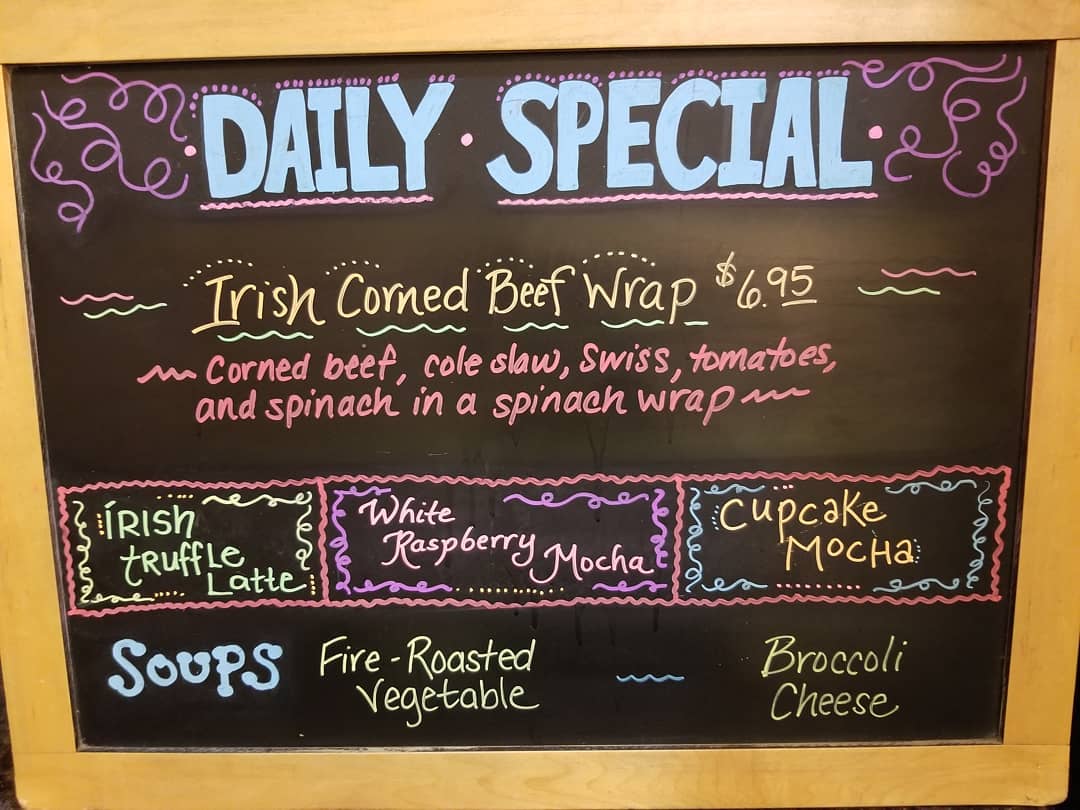 DAILY · SPECIAL
Irish Corned Beef Wrap $6.95
Corned beef, cole slaw, Swiss, tomatoes,
and spinach in a spinach wrap
IRISH
TRUFFLE
LATTE
White
Raspberry
Mocha
CUPCAKE
MOCHA
SOUPS
Fire-Roasted
Vegetable
Broccoli
Cheese